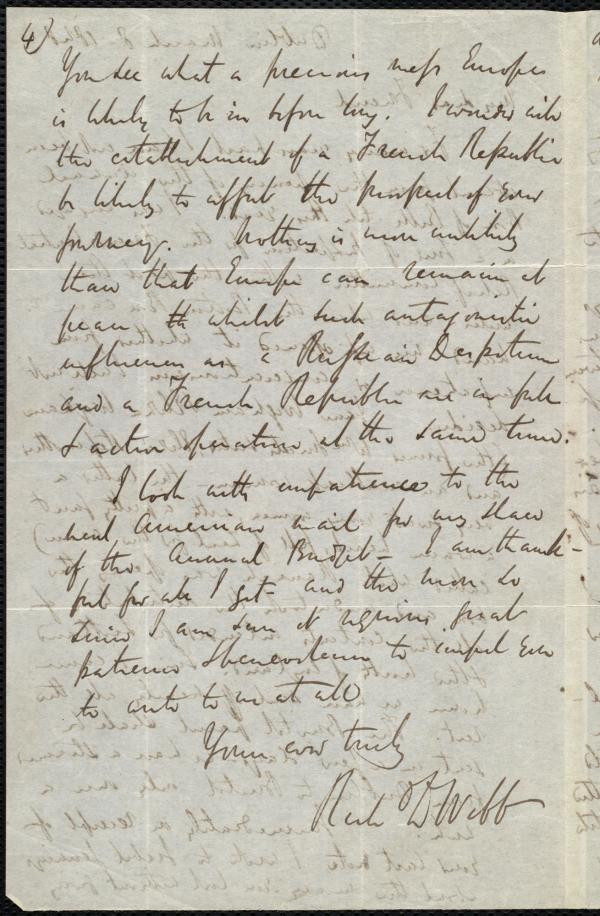 4)
You see what a precious mess Europe
is likely to be in before long. I wonder will
the establishment of a French Republic
be likely to affect the prospect of your
journey. Nothing is more unlikely
than that Europe can remain at
peace th whilst such antagonistic
influences as a Russian Despotism
and a French Republic are in full
& active operation at the same time.
I look with impatience to the
next American mail for my share
of the Annual Budget - I am thank-
ful for all I get - and the more so
since I am sure it requires great
patience & benevolence to impel you
to write to me at all
Yours ever truly
Rich D Webb